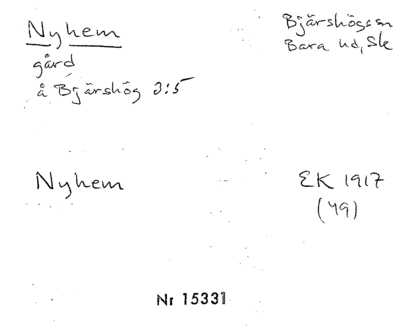 Nyhem
gård
å Bjärshög 3:5
Bjärshögs sn
Bara hd, Sk
Nyhem
EK 1917
(49)
Nr 15331